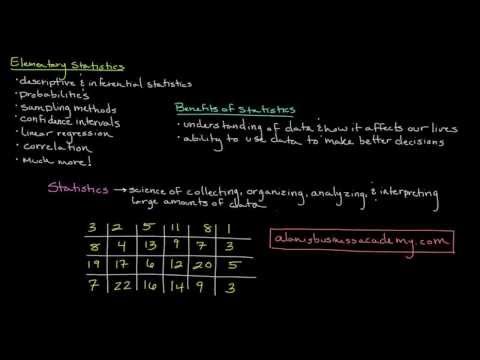 Elementary Statistics
• descriptive & inferential statistics
• probabilities
• sampling methods
• confidence intervals
• linear regression
• correlation
• Much more!
Benefits of Statistics
• understanding of data & how it affects our lives
• ability to use data to make better decisions
Statistics → science of collecting, organizing, analyzing, & interpreting
large amounts of data
3 2 5 11 8 1
8 4 13 9 7 3
19 17 6 12 20 5
7 22 16 14 9 3
alanisbusinessacademy.com